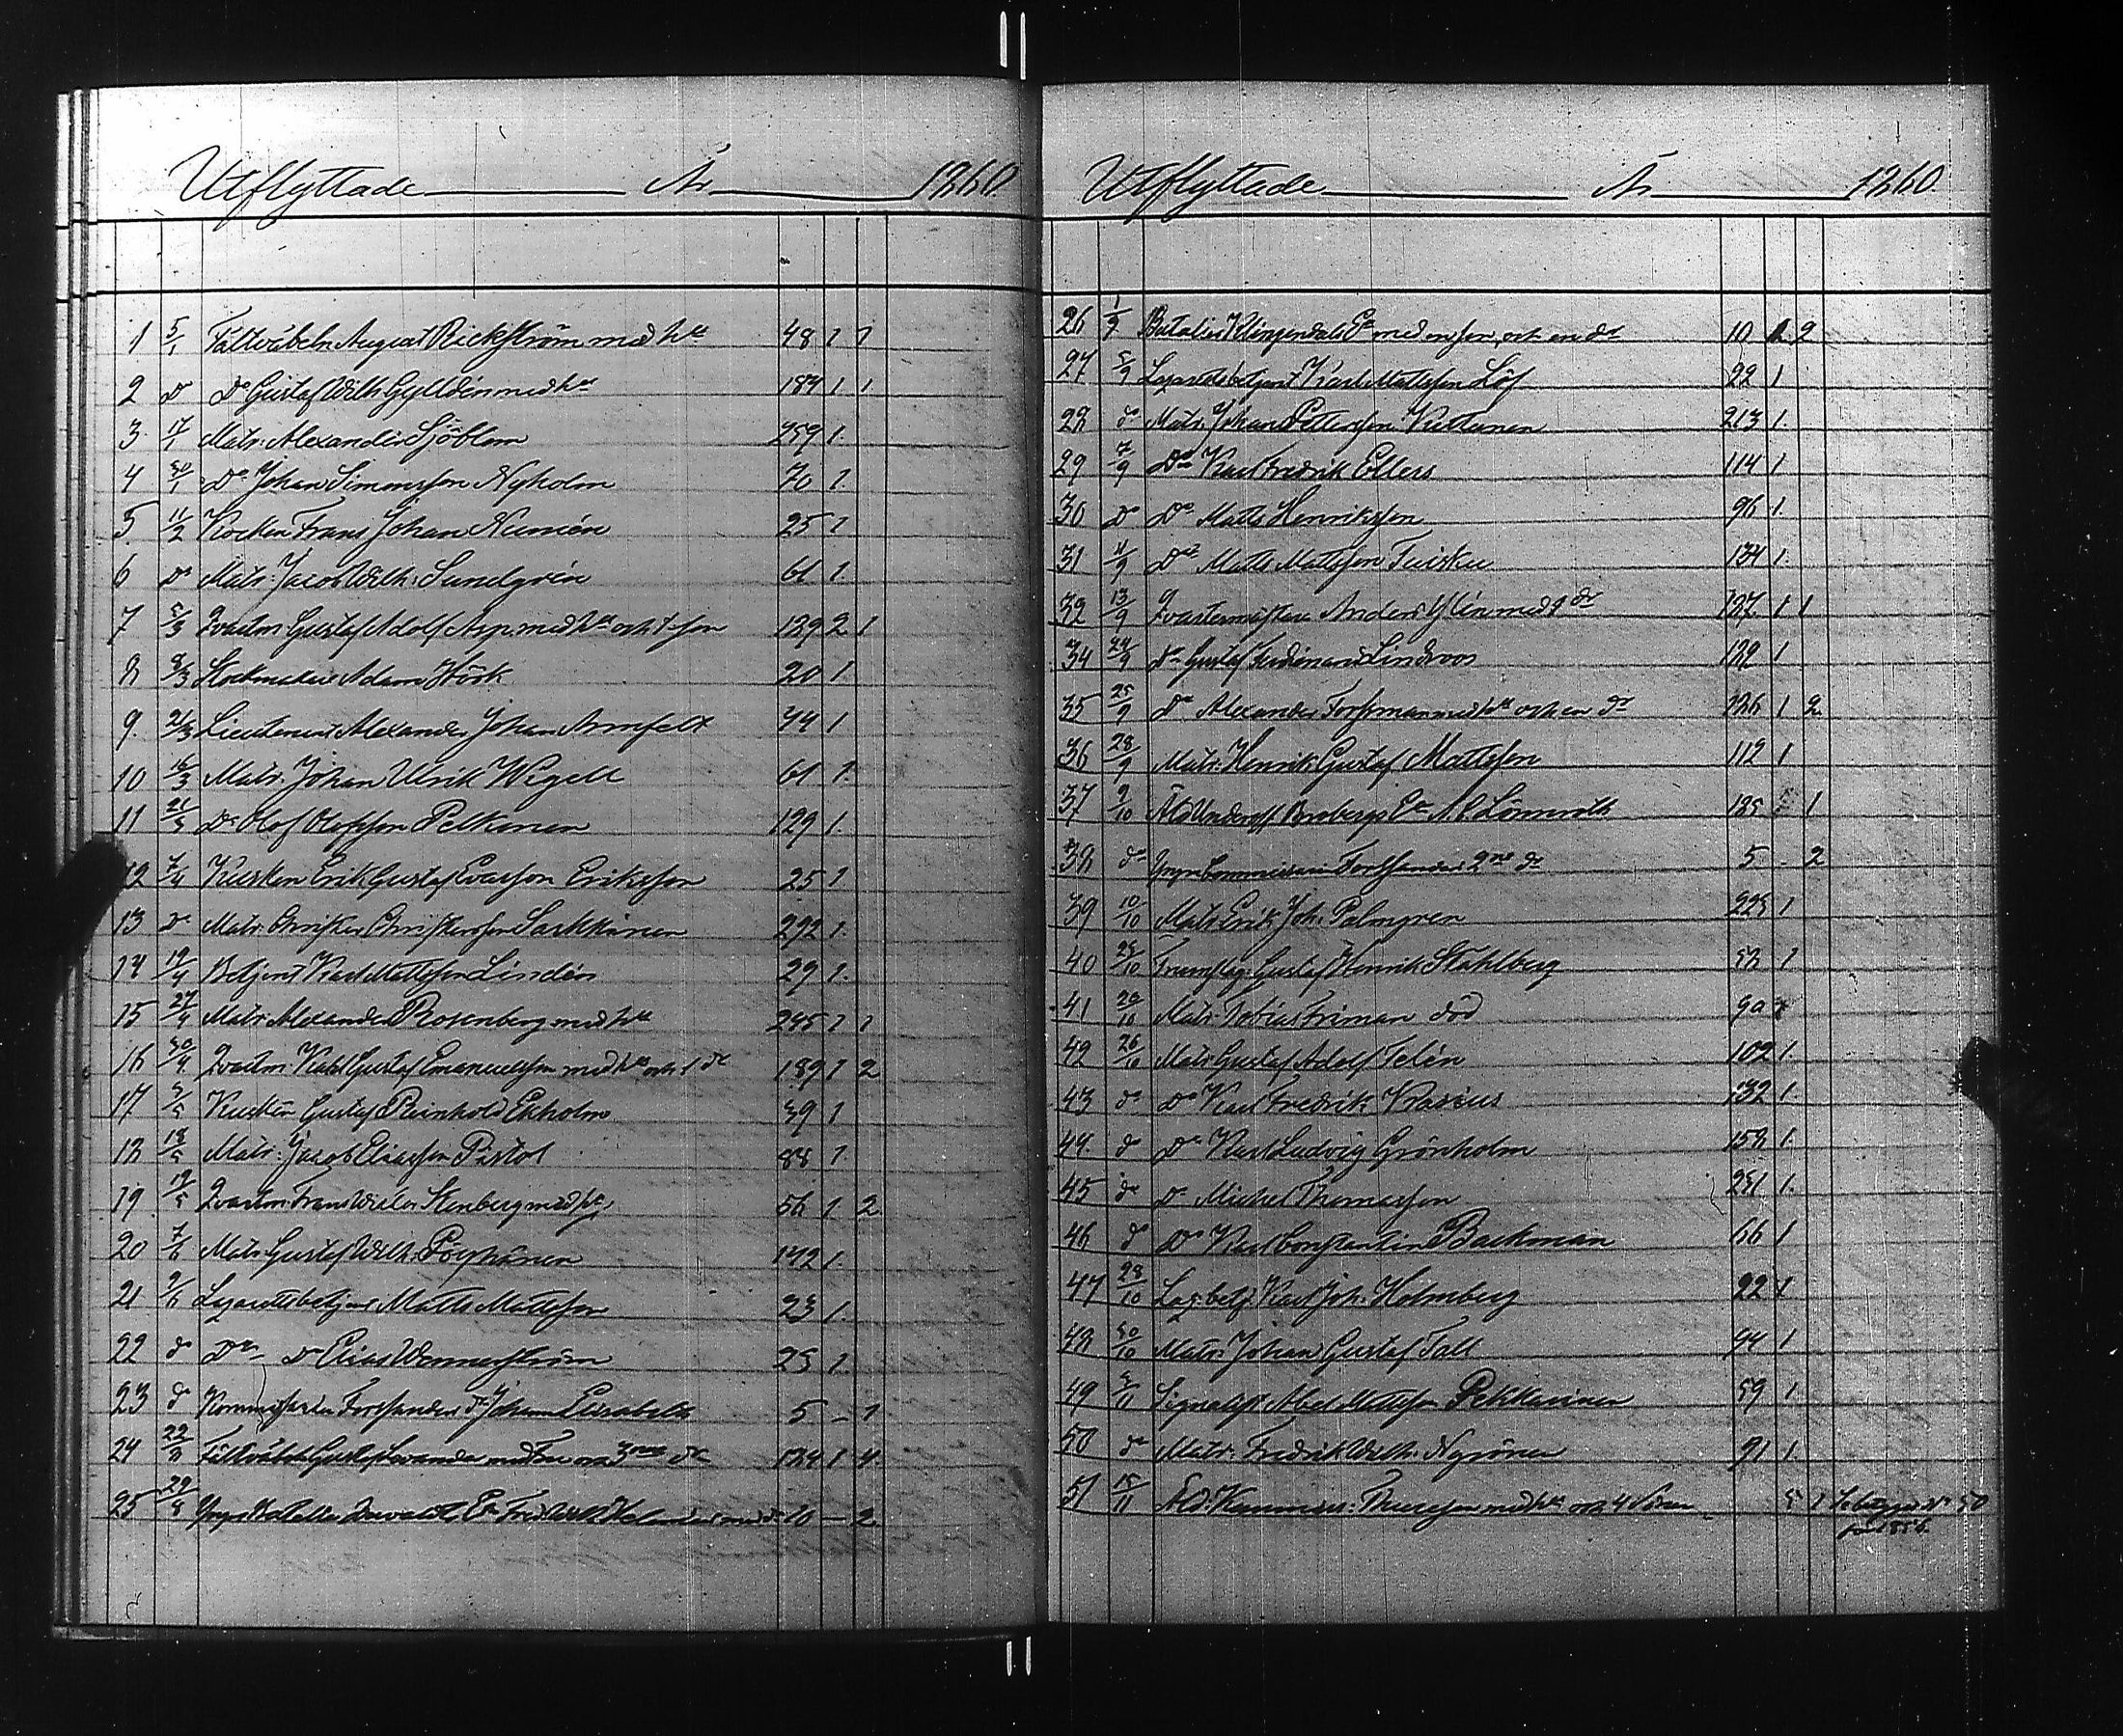 Utflyttade År 1860
1 5/1 Fältväbeln August Rickström med h 48 1 1
2 Do Do Gustaf Wilh Gylldén med h 184 1 1
3 17/1 Matr: Alexander Sjöblom 259 1
4 30/1 Do Johan Simonsson Nyholm 70 1
5 11/2 Kocken Frans Johan Numén 25 1
6 Do Matr: Jacob Wilh: Sundgrén 61 1
7 5/3 Qvartm: Gustaf Adolf Asp med h och 1 son 189 2 1
8 8/3 Stockmakar Adam Hörk 20 1
9 21/3 Lieutenant Alexander Johan Armfelt 44 1
10 16/3 Matr: Johan Ulrik Wigell 61 1
11 21/3 Do Olof Olofsson Pelkonen 129 1
12 7/4 Kusken Erik Gustaf Evasson Eriksson 25 1
13 Do Matr: Christer Christersson Sarkkinen 292 1
14 19/4 Betjent Karl Mattsson Lindén 29 1
15 27/4 Matr: Alexander Rosenberg med h 245 1 1
16 30/4 Qvartm: Karl Gustaf Emanuelsson med h och 1 dr 189 1 2
17 3/5 Kusken Gustaf Reinhold Ekholm 39 1
18 18/5 Matr: Jacob Eliasson Pistol 88 1
19 19/5 Qvartm: Frans Wilh: Stenberg med h 56 1 2
20 7/6 Matr: Gustaf Wilh: Pöyhönen 142 1
21 9/6 Lazarettsbetjent Matts Mattsson 23 1
22 do Do Do Elias Wennerström 25 1
23 do Kommissarien Forssanders dr Johanna Elisabeth 5 – 1
24 22/8 Fältväbel Gustaf Levander med fru och 3 dr 184 1 4
25 29/8 10 – 2
Utflyttade År 1860.
26 1/9 Klingendahls Ea med en son och en dr 10 1 2
27 5/9 Lazarettsbetjent Karl Mattsson Löf 22 1
28 do Matr: Johan Pettersson Kuttunen 213 1
29 7/9 Do Karl Fredrik Ellers 114 1
30 Do Do Matts Henriksson 96 1
31 11/9 Do Matts Mattsson Tuisku 134 1
32 13/9 Qvartermästare Anders Ylén med 1 dr 187 1 1
34 24/9 Do Gustaf Ferdinand Lindroos 182 1
35 25/9 Do Alexander Forssman med h och en dr 186 1 2
36 28/9 Matr: Henrik Gustaf Mattsson 112 1
37 9/10 Äld Underoff Brobergs Ea A. C. Lönnroth 185 1
38 do Yngr Commissarie Forssanders 2ne dr 5 – 2
39 10/10 Matr: Erik Joh: Palmgren 225 1
40 25/10 Trumslag: Gustaf Henrik Ståhlberg 53 1
41 20/10 Matr: Tobias Friman död 90
42 26/10 Matr: Gustaf Adolf Telén 102 1
43 do Do Karl Fredrik Krasius 132 1
44 do Do Karl Ludvig Grönholm 158 1
45 do Do Michel Thomasson 251 1
46 do Do Karl Constantin Backman 66 1
47 28/10 Laz: betj: Karl Joh: Holmberg 22 1
48 30/10 Matr: Johan Gustaf Fall 94 1
49 5/11 Signalist Abel Mattsson Pekkarinen 59 1
50 do Matr: Fredrik Wilh: Nyrönen 91 1
51 15/11 Äld: Kommiss: Thuresson med h och 4 5 1 No 50
för 1856.